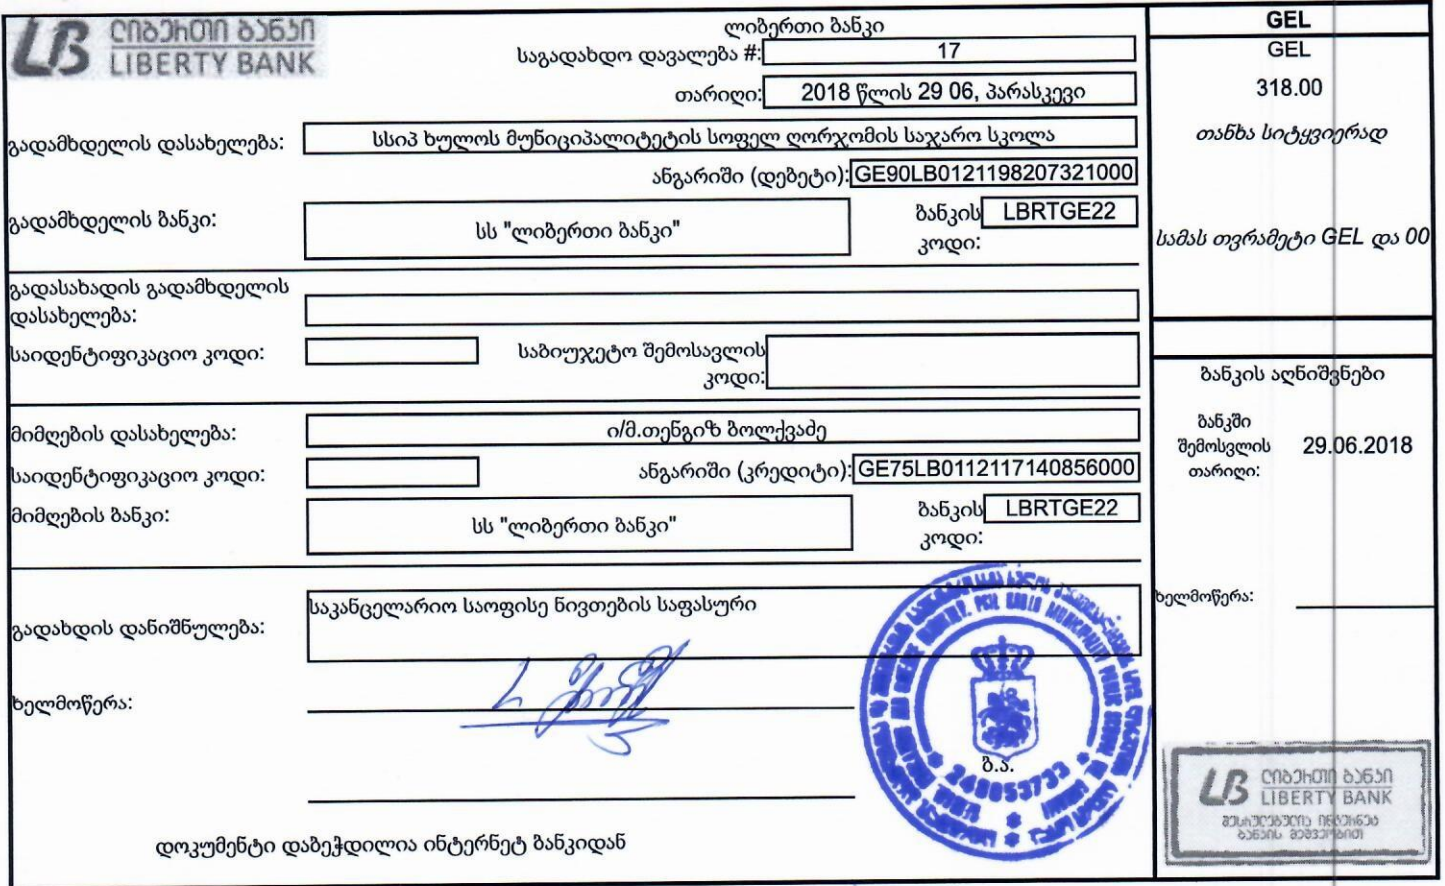 ლიბერთი ბანკი
LIBERTY BANK
ლიბერთი ბანკი
საგადახდო დავალება #: 17
თარიღი: 2018 წლის 29 06, პარასკევი
გადამხდელის დასახელება: სსიპ ხულოს მუნიციპალიტეტის სოფელ ღორჯომის საჯარო სკოლა
ანგარიში (დებეტი): GE90LB0121198207321000
გადამხდელის ბანკი: სს "ლიბერთი ბანკი" ბანკის კოდი: LBRTGE22
გადასახადის გადამხდელის
დასახელება:
საიდენტიფიკაციო კოდი: საბიუჯეტო შემოსავლის
კოდი:
მიმღების დასახელება: ი/მ.თენგიზ ბოლქვაძე
საიდენტიფიკაციო კოდი: ანგარიში (კრედიტი): GE75LB0112117140856000
მიმღების ბანკი: სს "ლიბერთი ბანკი" ბანკის კოდი: LBRTGE22
საკანცელარიო საოფისე ნივთების საფასური
გადახდის დანიშნულება:
ხელმოწერა:
ბ.ა.
248053733
დოკუმენტი დაბეჭდილია ინტერნეტ ბანკიდან
GEL
GEL
318.00
თანხა სიტყვიერად
სამას თვრამეტი GEL და 00
ბანკის აღნიშვნები
ბანკში
შემოსვლის 29.06.2018
თარიღი:
ხელმოწერა:
ლიბერთი ბანკი
LIBERTY BANK
შესრულებულია ინტერნეტ
ბანკის მეშვეობით